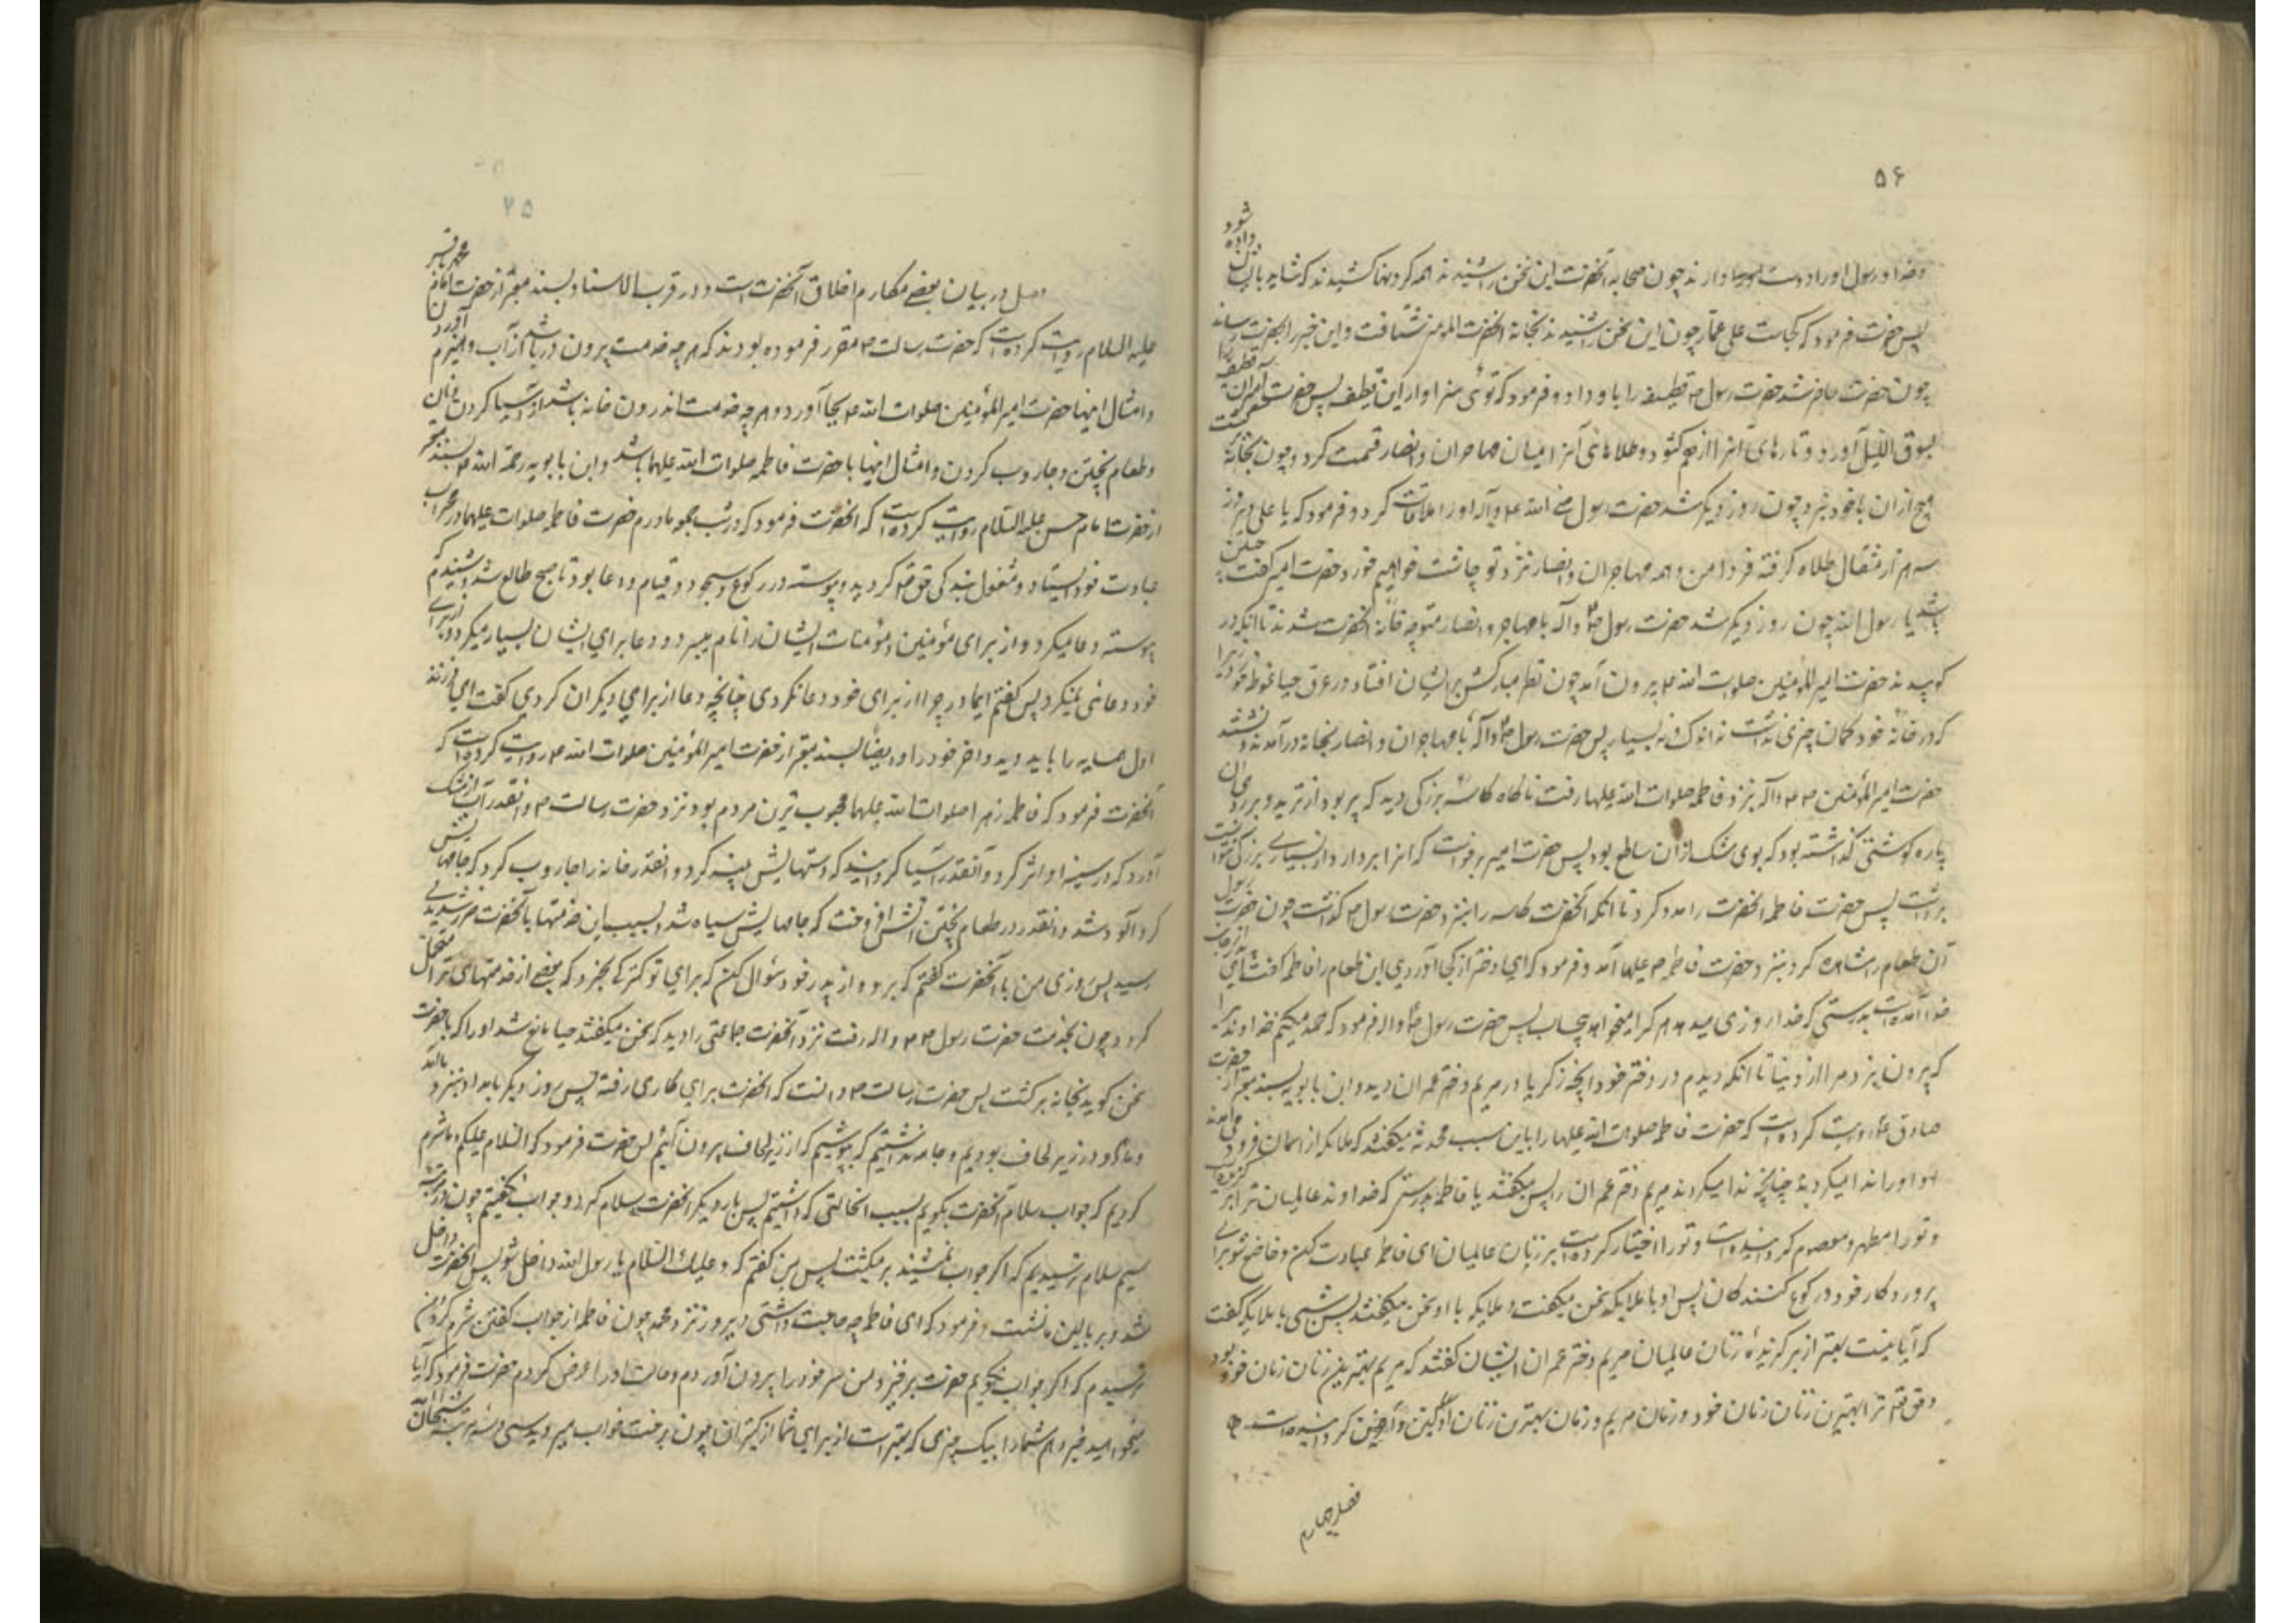 ۵۶
وخدا و رسول او را دوست میدارند چون صحابه آنحضرت این سخن را شنیدند همه گردنها کشیدند که شاید باایشان داده شود
پس حضرت فرمود که کجاست علی عمار چون این سخن را شنید بخانه آنحضرت شتافت و این خبر را بحضرت رساند
چون حضرت حاضر شد حضرت رسول ۳ قطیفه را باو داد و فرمود که توئی سزاوار این قطیفه پس حضرت آن قطیفه را
بسوق اللیل آورد و تارهای آنرا از هم کشود و طلاهای آنرا میان مهاجران و انصار قسمت کرد و چون بخانه
هیچ از ان با خود نبرد چون روز دیگر شد حضرت رسول صلی الله علیه و آله او را ملاقات کرد و فرمود که یا علی دیروز
سه هزار مثقال طلا گرفته فردا من و همه مهاجران و انصار نزد تو چاشت خواهیم خورد حضرت امیر گفت چنین
باشد یا رسول الله چون روز دیگر شد حضرت رسول ص و آله با مهاجر و انصار متوجه خانه آنحضرت شدند تا آنکه در
کوبیدند حضرت امیر المؤمنین صلوات الله ۴ بیرون آمد چون نظر مبارکش بر ایشان افتاد در عرق حیا غوطه خورد زیرا
که در خانه خود گمان چیزی نداشت نه اندک و نه بسیار پس حضرت رسول ص و آله با مهاجران و انصار بخانه درآمدند و نشستند
حضرت امیر المؤمنین بنزد فاطمه صلوات الله علیها رفت ناگاه کاسه بزرگی دید که پر بود از ترید و بر روی آن
پاره گوشتی گذاشته بود که بوی مشک از آن ساطع بود پس حضرت امیر برخواست که آنرا بردارد از بسیاری بزرگی نتوانست
برداشت پس حضرت فاطمه آنحضرت را مدد کرد تا آنکه آنحضرت کاسه را بنزد حضرت رسول ۳ گذاشت چون حضرت رسول
آن طعام را مشاهده کرد بنزد حضرت فاطمه علیها آمد و فرمود که ای دختر از کجا آوردی این طعام را فاطمه گفت از جانب
خدا آمده است بدرستی که خدا روزی میدهد هر که را میخواهد بیحساب پس حضرت رسول ص و اله فرمود که حمد میکنم خداوندی را
که بیرون نبرد مرا از دنیا تا آنکه دیدم در دختر خود آنچه زکریا در مریم دختر عمران دید و ابن بابویه بسند معتبر از حضرت
صادق ع روایت کرده است که حضرت فاطمه صلوات الله علیها را باین سبب محدثه میگفتند که ملائکه از اسمان فرود می آمدند
او را ندا میکردند چنانچه ندا میکردند مریم دختر عمران را پس میگفتند یا فاطمه بدرستی که خداوند عالمیان ترا برگزیده است
و تو را مطهر و معصوم گردانیده است و تو را اختیار کرده است بر زنان عالمیان ای فاطمه عبادت کن و خاضع شو برای
پروردگار خود و رکوع کن با رکوع کنندگان پس او با ملایکه سخن میگفت و ملایکه با او سخن میگفتند پس شبی با ملایکه گفت
که آیا نیست بهتر از برگزیدهٔ زنان عالمیان مریم دختر عمران ایشان گفتند که مریم بهترین زنان زنان خود بود
و حق تعالی ترا بهترین زنان زنان خود و زنان مریم و زنان بهترین زنان اولین و آخرین گردانیده است
فصل چهارم
۲۵
فصل در بیان بعضی مکارم اخلاق آنحضرت است و در قرب الاسناد بسند معتبر از حضرت امام محمد باقر
علیه السلام روایت کرده است که حضرت رسالت ۳ مقرر فرموده بودند که هر چه خدمت بیرون در باشد از آب و هیزم آوردن
و امثال اینها حضرت امیر المؤمنین صلوات الله ۴ بجا آورد و هر چه خدمت اندرون خانه باشد از آسیا کردن و نان
و طعام پختن و جاروب کردن و امثال اینها با حضرت فاطمه صلوات الله علیها باشد و ابن بابویه رحمة الله ۴ بسند معتبر
از حضرت امام حسن علیه السلام روایت کرده است که آنحضرت فرمود که در شب جمعه مادرم حضرت فاطمه صلوات علیها در محراب
عبادت خود ایستاد و مشغول بندگی حق تعالی گردید و پیوسته در رکوع و سجود و قیام و دعا بود تا صبح طالع شد و شنیدم که
پیوسته دعا میکرد از برای مؤمنین و مؤمنات ایشان را نام میبرد و دعا برای ایشان بسیار میکرد و از برای
خود دعائی نمیکرد پس گفتم ای مادر چرا از برای خود دعا نکردی چنانچه دعا از برای دیگران کردی گفت ای فرزند
اول همسایه را باید دید و آخر خود را و ایضا بسند معتبر از حضرت امیر المؤمنین صلوات الله ۴ روایت کرده است که
آنحضرت فرمود که فاطمه زهرا صلوات الله علیها محبوب ترین مردم بود نزد حضرت رسالت ۳ و آنقدر آب از مشک
آورد که در سینه او اثر کرد و آنقدر آسیا گردانید که دستهایش پینه کرد و آنقدر خانه را جاروب کرد که جامهایش
گرد آلود شد و آنقدر در طعام پختن آتش افروخت که جامهایش سیاه شد و بسبب این خدمتها بآنحضرت ضرر شدیدی
رسید پس روزی من با آنحضرت گفتم که برو و از پدر خود سؤال کن که برای تو کنیزکی بخرد که بعضی از خدمتهای ترا متحمل
گردد چون بخدمت حضرت رسول و اله رفت نزد آنحضرت جماعتی را دید که سخن میگفتند حیا مانع شد او را که با حضرت
سخن گوید بخانه برگشت پس حضرت رسالت ۳ دانست که آنحضرت برای کاری رفته پس روز دیگر بامداد بنزد ما آمد
و ما هر دو در زیر لحاف بودیم و جامه نداشتیم که بپوشیم که از زیر لحاف بیرون آئیم پس حضرت فرمود که السلام علیکم ما شرم
کردیم که جواب سلام آنحضرت بگوییم بسبب آنحالتی که داشتیم پس بار دیگر آنحضرت سلام کرد و جواب نگفتیم چون در مرتبه
سیم سلام ترسیدیم که اگر جواب نشنید برمیگشت پس من گفتم که و علیک السلام یا رسول الله داخل شو پس آنحضرت داخل
شد و بر بالین ما نشست و فرمود که ای فاطمه چه حاجت داشتی دیروز نزد محمد چون فاطمه از جواب گفتن شرم کرد من
ترسیدم که اگر جواب نگویم حضرت برخیزد من سر خود را بیرون آوردم و حالت او را عرض کردم حضرت فرمود که آیا
میخواهید خبر دهم شما را بیک چیزی که بهتر است از برای شما از کنیز آن چون برخت خواب میروید سی و سه مرتبه سبحان الله